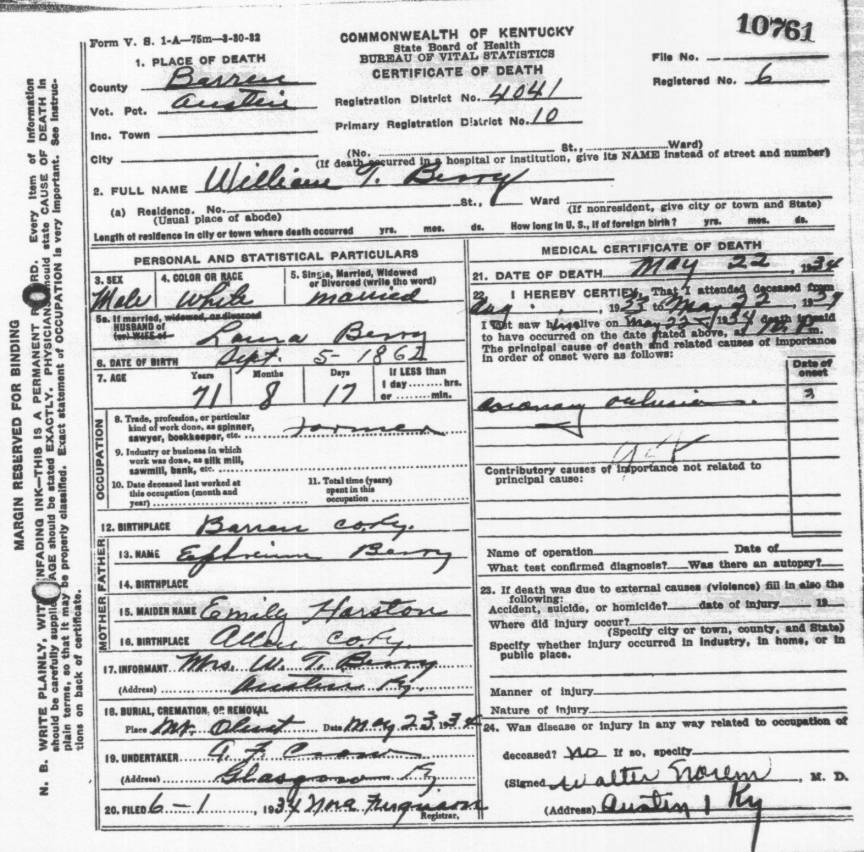 10761
Form V. S. 1-A—75m—3-30-32
COMMONWEALTH OF KENTUCKY
State Board of Health
BUREAU OF VITAL STATISTICS
CERTIFICATE OF DEATH
File No.
Registered No. 6
1. PLACE OF DEATH
County Barren
Vot. Pct. Austin
Inc. Town
City
Registration District No. 4041
Primary Registration District No. 10
(No. St., Ward)
(If death occurred in a hospital or institution, give its NAME instead of street and number)
2. FULL NAME William T. Berry
(a) Residence. No. St., Ward
(Usual place of abode) (If nonresident, give city or town and State)
Length of residence in city or town where death occurred yrs. mos. ds. How long in U. S., if of foreign birth? yrs. mos. ds.
PERSONAL AND STATISTICAL PARTICULARS
3. SEX Male
4. COLOR OR RACE White
5. Single, Married, Widowed or Divorced (write the word) married
5a. If married, widowed, or divorced
HUSBAND of
(or) WIFE of Laura Berry
6. DATE OF BIRTH Sept. 5- 1862
7. AGE Years 71 Months 8 Days 17 If LESS than
1 day ........ hrs.
or ........ min.
OCCUPATION
8. Trade, profession, or particular
kind of work done, as spinner,
sawyer, bookkeeper, etc. Farmer
9. Industry or business in which
work was done, as silk mill,
sawmill, bank, etc.
10. Date deceased last worked at
this occupation (month and
year)
11. Total time (years)
spent in this
occupation
12. BIRTHPLACE Barren Co Ky.
FATHER
13. NAME Berry
14. BIRTHPLACE
MOTHER
15. MAIDEN NAME Emily Harston
16. BIRTHPLACE Allen Co Ky.
17. INFORMANT Mrs. W. T. Berry
(Address) Austin Ky.
18. BURIAL, CREMATION, OR REMOVAL
Place Mt. Date May 23 1934
19. UNDERTAKER Crow
(Address) Glasgow Ky
20. FILED 6-1 1934 Nora Ferguson
Registrar.
MEDICAL CERTIFICATE OF DEATH
21. DATE OF DEATH May 22, 1934
22. I HEREBY CERTIFY, That I attended deceased from
Aug , 19 to May 22, 19
I last saw him alive on May 22, 1934 death is said
to have occurred on the date stated above, at m.
The principal cause of death and related causes of importance
in order of onset were as follows:
Date of
onset
coronary occlusion. ?
Contributory causes of importance not related to
principal cause:
Name of operation Date of
What test confirmed diagnosis? Was there an autopsy?
23. If death was due to external causes (violence) fill in also the
following:
Accident, suicide, or homicide? date of injury 19
Where did injury occur?
(Specify city or town, county, and State)
Specify whether injury occurred in industry, in home, or in
public place.
Manner of injury
Nature of injury
24. Was disease or injury in any way related to occupation of
deceased? No If so, specify
(Signed Walter Norem, M. D.
(Address) Austin, Ky
MARGIN RESERVED FOR BINDING
N. B. WRITE PLAINLY, WITH UNFADING INK—THIS IS A PERMANENT RECORD. Every item of information
should be carefully supplied. AGE should be stated EXACTLY. PHYSICIANS should state CAUSE OF DEATH in
plain terms, so that it may be properly classified. Exact statement of OCCUPATION is very important. See instruc-
tions on back of certificate.